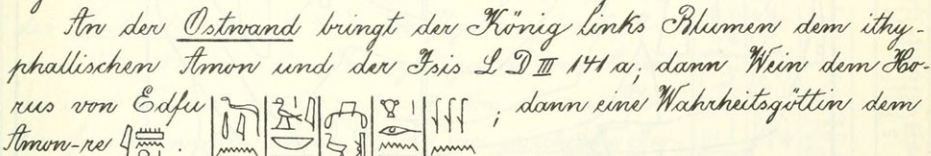 An der Ostwand bringt der König links Blumen dem ithy-
phallischen Amon und der Isis L D III 141 a; dann Wein dem Ho-
rus von Edfu ; dann eine Wahrheitsgöttin dem
Amon-re .